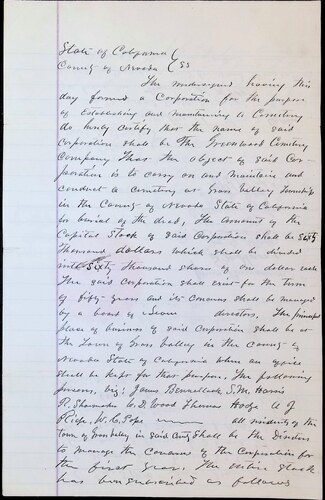 State of California }
County of Nevada } SS
The undersigned having this
day formed a Corporation for the purpose
of Establishing and maintaining a Cemetery
do hereby certify that the name of said
corporation shall be The Greenwood Cemetery
Company That the object of said Cor-
poration is to carry on and maintain and
conduct a cemetery at Grass Valley Township
in the County of Nevada State of California
for burial of the dead, The amount of the
Capital Stock of said Corporation shall be Sixty
Thousand dollars which shall be divided
into Sixty Thousand shares of one dollar each
The said Corporation shall exist for the Term
of fifty years and its concerns shall be managed
by a board of Seven directors, The principal
place of business of said Corporation shall be at
the Town of Grass Valley in the County of
Nevada State of California when an office
shall be kept for that purpose. The following
persons, viz: James Bennallack, S.M. Harris
R. D. Wood Thomas Hodge
W.C. Pope all residents of the
town of Grass Valley in said County Shall be the Directors
to manage the concerns of the Corporation for
the first year. The entire stock
has been subscribed as follows